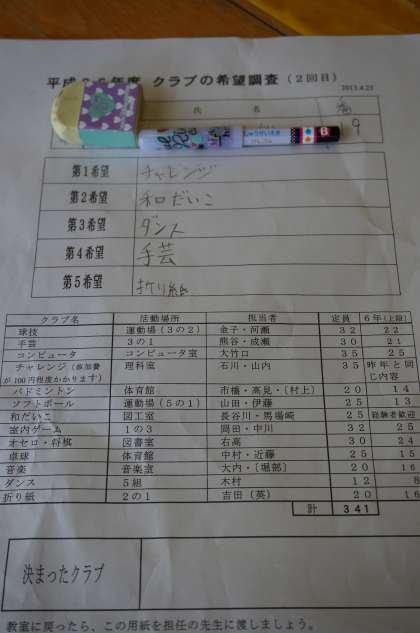 平成25年度 クラブの希望調査(2回目)
2013.4.25
氏 名
9
第1希望 チャレンジ
第2希望 和だいこ
第3希望 ダンス
第4希望 手芸
第5希望 折り紙
クラブ名 活動場所 担当者 定員 6年(上段)
球技 運動場(3の2) 金子・河瀬 32 22
手芸 3の1 熊谷・成瀬 30 21
コンピュータ コンピュータ室 大竹口 35 25
チャレンジ(参加費が100円程度かかります) 理科室 石川・山内 35 昨年と同じ内容
バドミントン 体育館 市橋・高見・〔村上〕 20 14
ソフトボール 運動場(5の1) 山田・伊藤 25 13
和だいこ 図工室 長谷川・馬場崎 25 経験者歓迎
室内ゲーム 1の3 岡田・中川 32 25
オセロ・将棋 図書室 右高 30 24
卓球 体育館 中村・近藤 25 15
音楽 音楽室 大内・〔堀部〕 20 16
ダンス 5組 木村 12 8
折り紙 2の1 吉田(英) 20 16
計 341
決まったクラブ
教室に戻ったら、この用紙を担任の先生に渡しましょう。